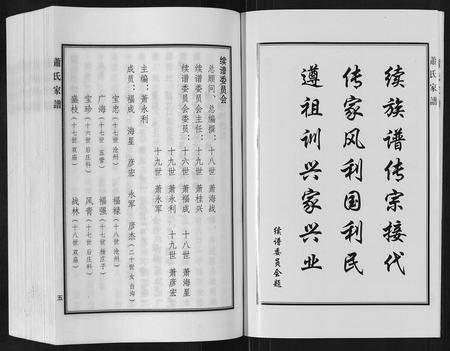 续族谱传宗接代
传家风利国利民
遵祖训兴家兴业
续谱委员会题
蕭氏家譜
续谱委员会
总顾问、总编撰：十八世 萧海战
续谱委员会主任：十九世 萧桂兴
续谱委员会委员：十六世 萧福成 十八世 萧海星
十九世 萧永利 十九世 萧彦宏
十九世 萧永军
主编：萧永利
成员：福成 海星 彦宏 永军 彦杰(二十世女白沟)
宝忠(十七世沧州) 福禄(十八世沧州)
广海(十七世五营) 福强(十七世杨庄子)
宝珍(十六世后庄科) 风青(十七世后庄科)
盛枝(十七世双庙) 战林(十八世双庙)
五